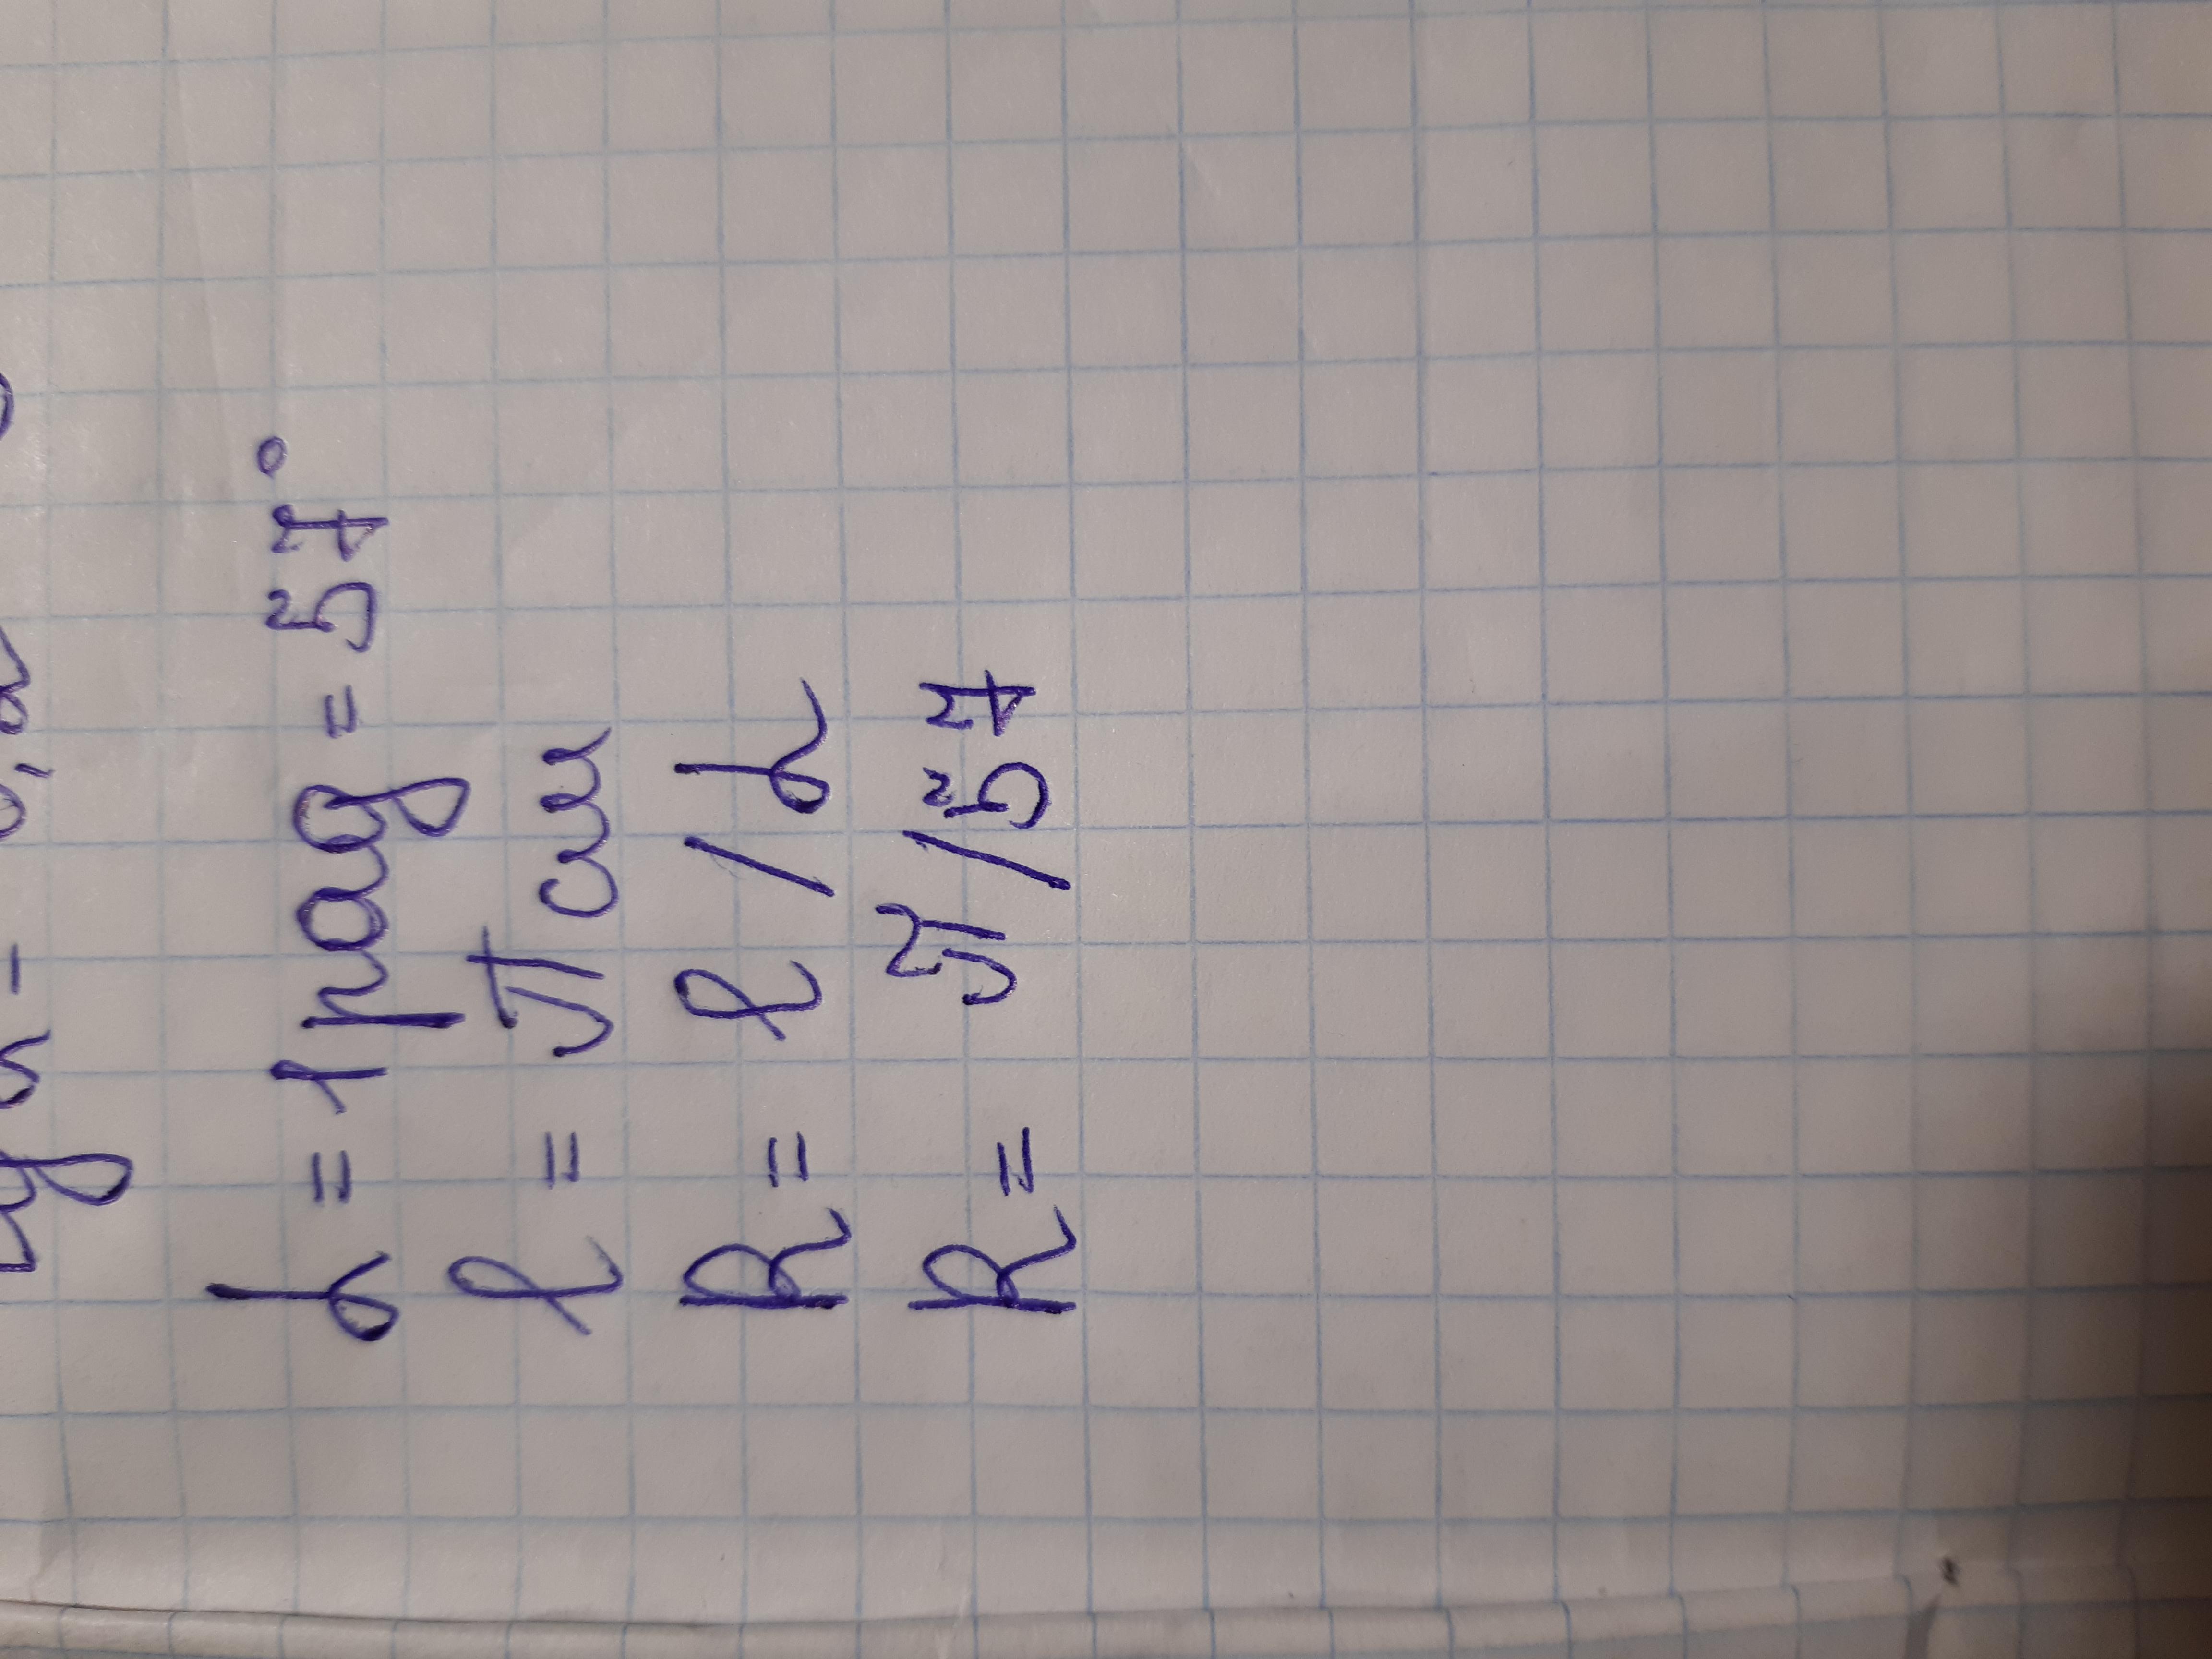 α = 1 рад = 57°
l = π см
R = l / α
R = π / 57